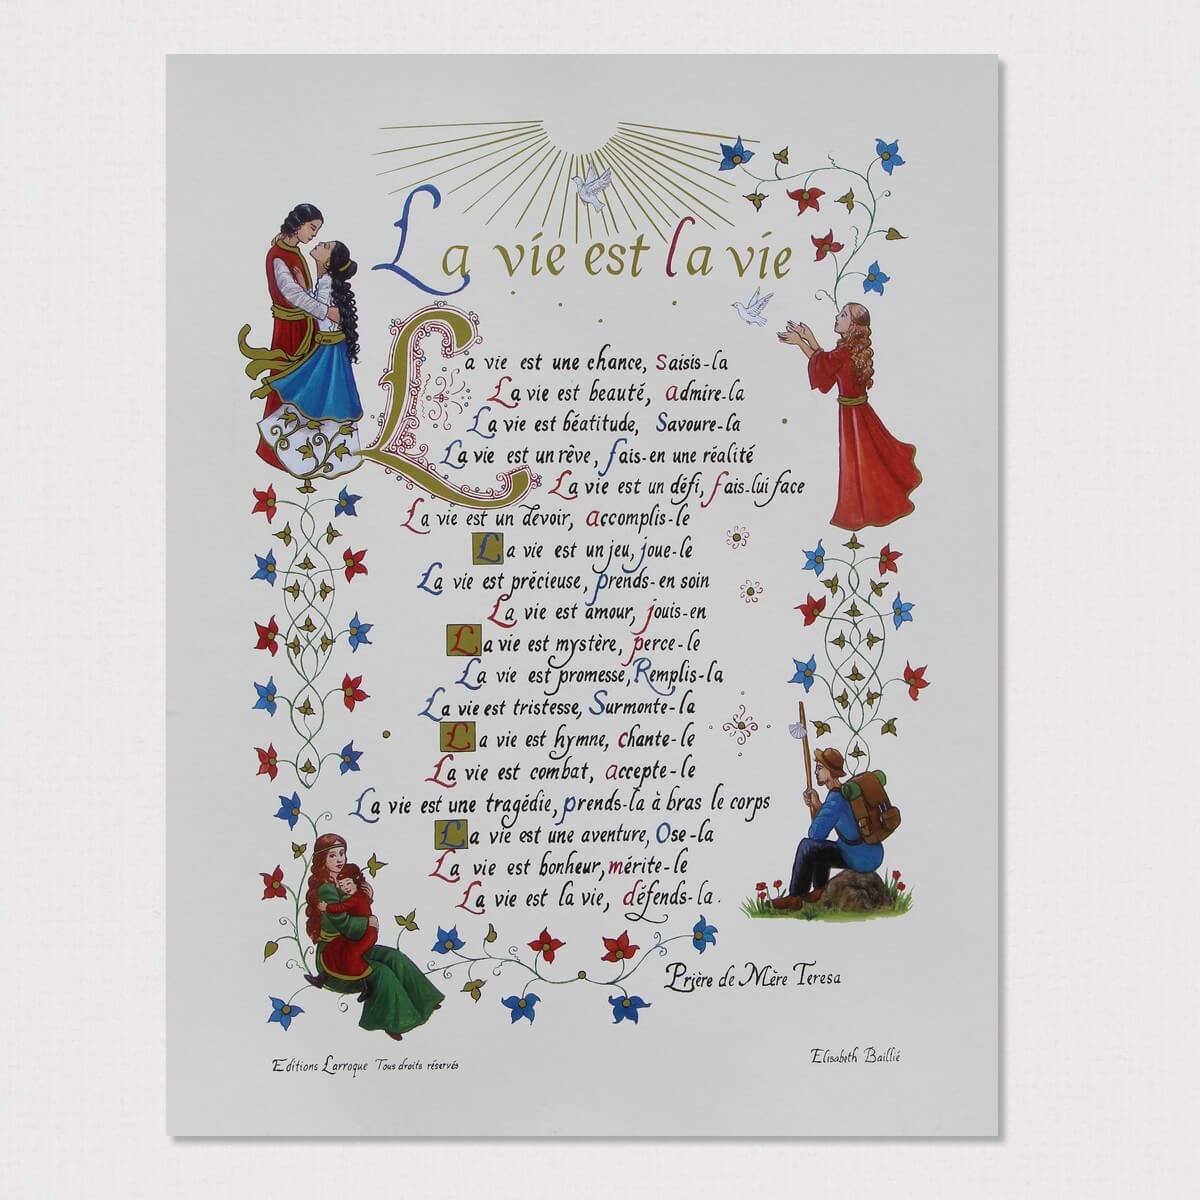 La vie est la vie
La vie est une chance, Saisis-la
La vie est beauté, admire-la
La vie est béatitude, Savoure-la
La vie est un rêve, fais-en une réalité
La vie est un défi, fais-lui face
La vie est un devoir, accomplis-le
La vie est un jeu, joue-le
La vie est précieuse, prends-en soin
La vie est amour, jouis-en
La vie est mystère, perce-le
La vie est promesse, Remplis-la
La vie est tristesse, Surmonte-la
La vie est hymne, chante-le
La vie est combat, accepte-le
La vie est une tragédie, prends-la à bras le corps
La vie est une aventure, Ose-la
La vie est bonheur, mérite-le
La vie est la vie, défends-la.
Prière de Mère Teresa
Editions Larroque Tous droits réservés
Elisabeth Baillié